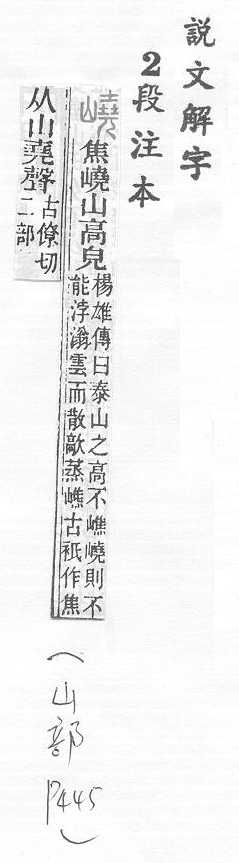 説文解字
2段注本
嶢
焦嶢山高皃
楊雄傳曰泰山之高不嶕嶢則不
能浡滃雲而散歊蒸嶕古衹作焦
从山堯聲
古僚切
二部
（山部
P445）